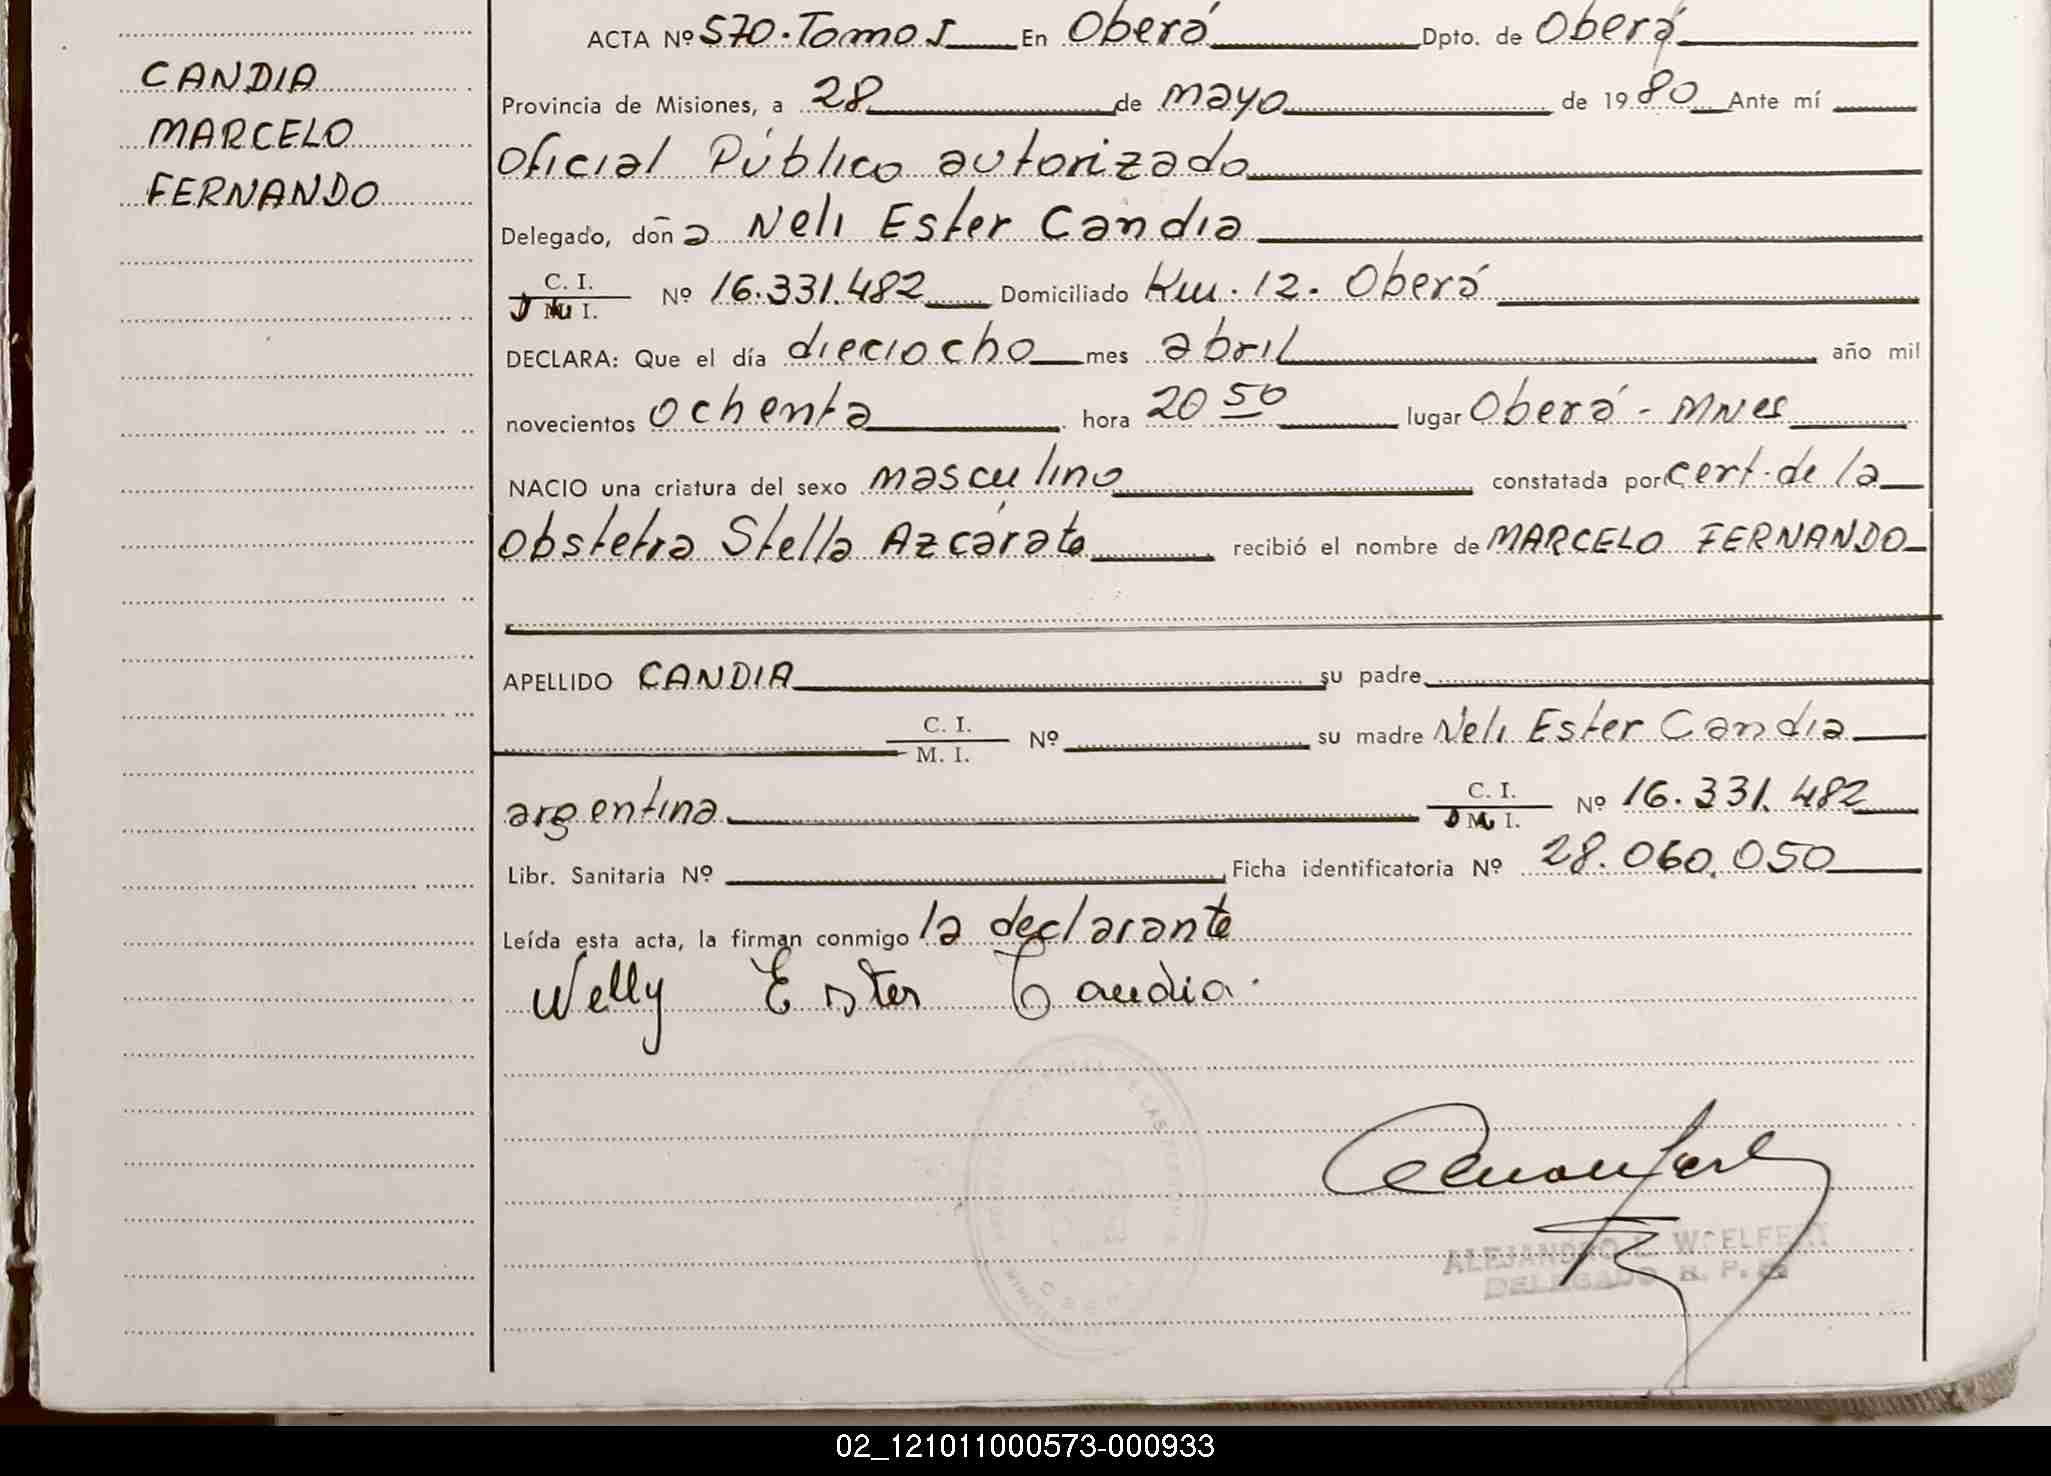 CANDIA
MARCELO
FERNANDO
ACTA Nº 570. Tomo I En Oberá Dpto. de Oberá
Provincia de Misiones, a 28 de mayo de 1980 Ante mí
Oficial Público autorizado
Delegado, doña Neli Ester Candia
C. I.
D N I. Nº 16.331.482 Domiciliado Km. 12. Oberá
DECLARA: Que el día dieciocho mes abril año mil
novecientos ochenta hora 20 50 lugar Oberá - MNes
NACIO una criatura del sexo masculino constatada por cert. de la
Obstetra Stella Azcárate recibió el nombre de MARCELO FERNANDO
APELLIDO CANDIA su padre
C. I.
M. I. Nº su madre Neli Ester Candia
argentina C. I.
D N I. Nº 16.331.482
Libr. Sanitaria Nº Ficha identificatoria Nº 28.060.050
Leída esta acta, la firman conmigo la declarante
Nelly Ester Candia.
ALEJANDRO L. WOELFERT
DELEGADO R. P.
02_121011000573-000933